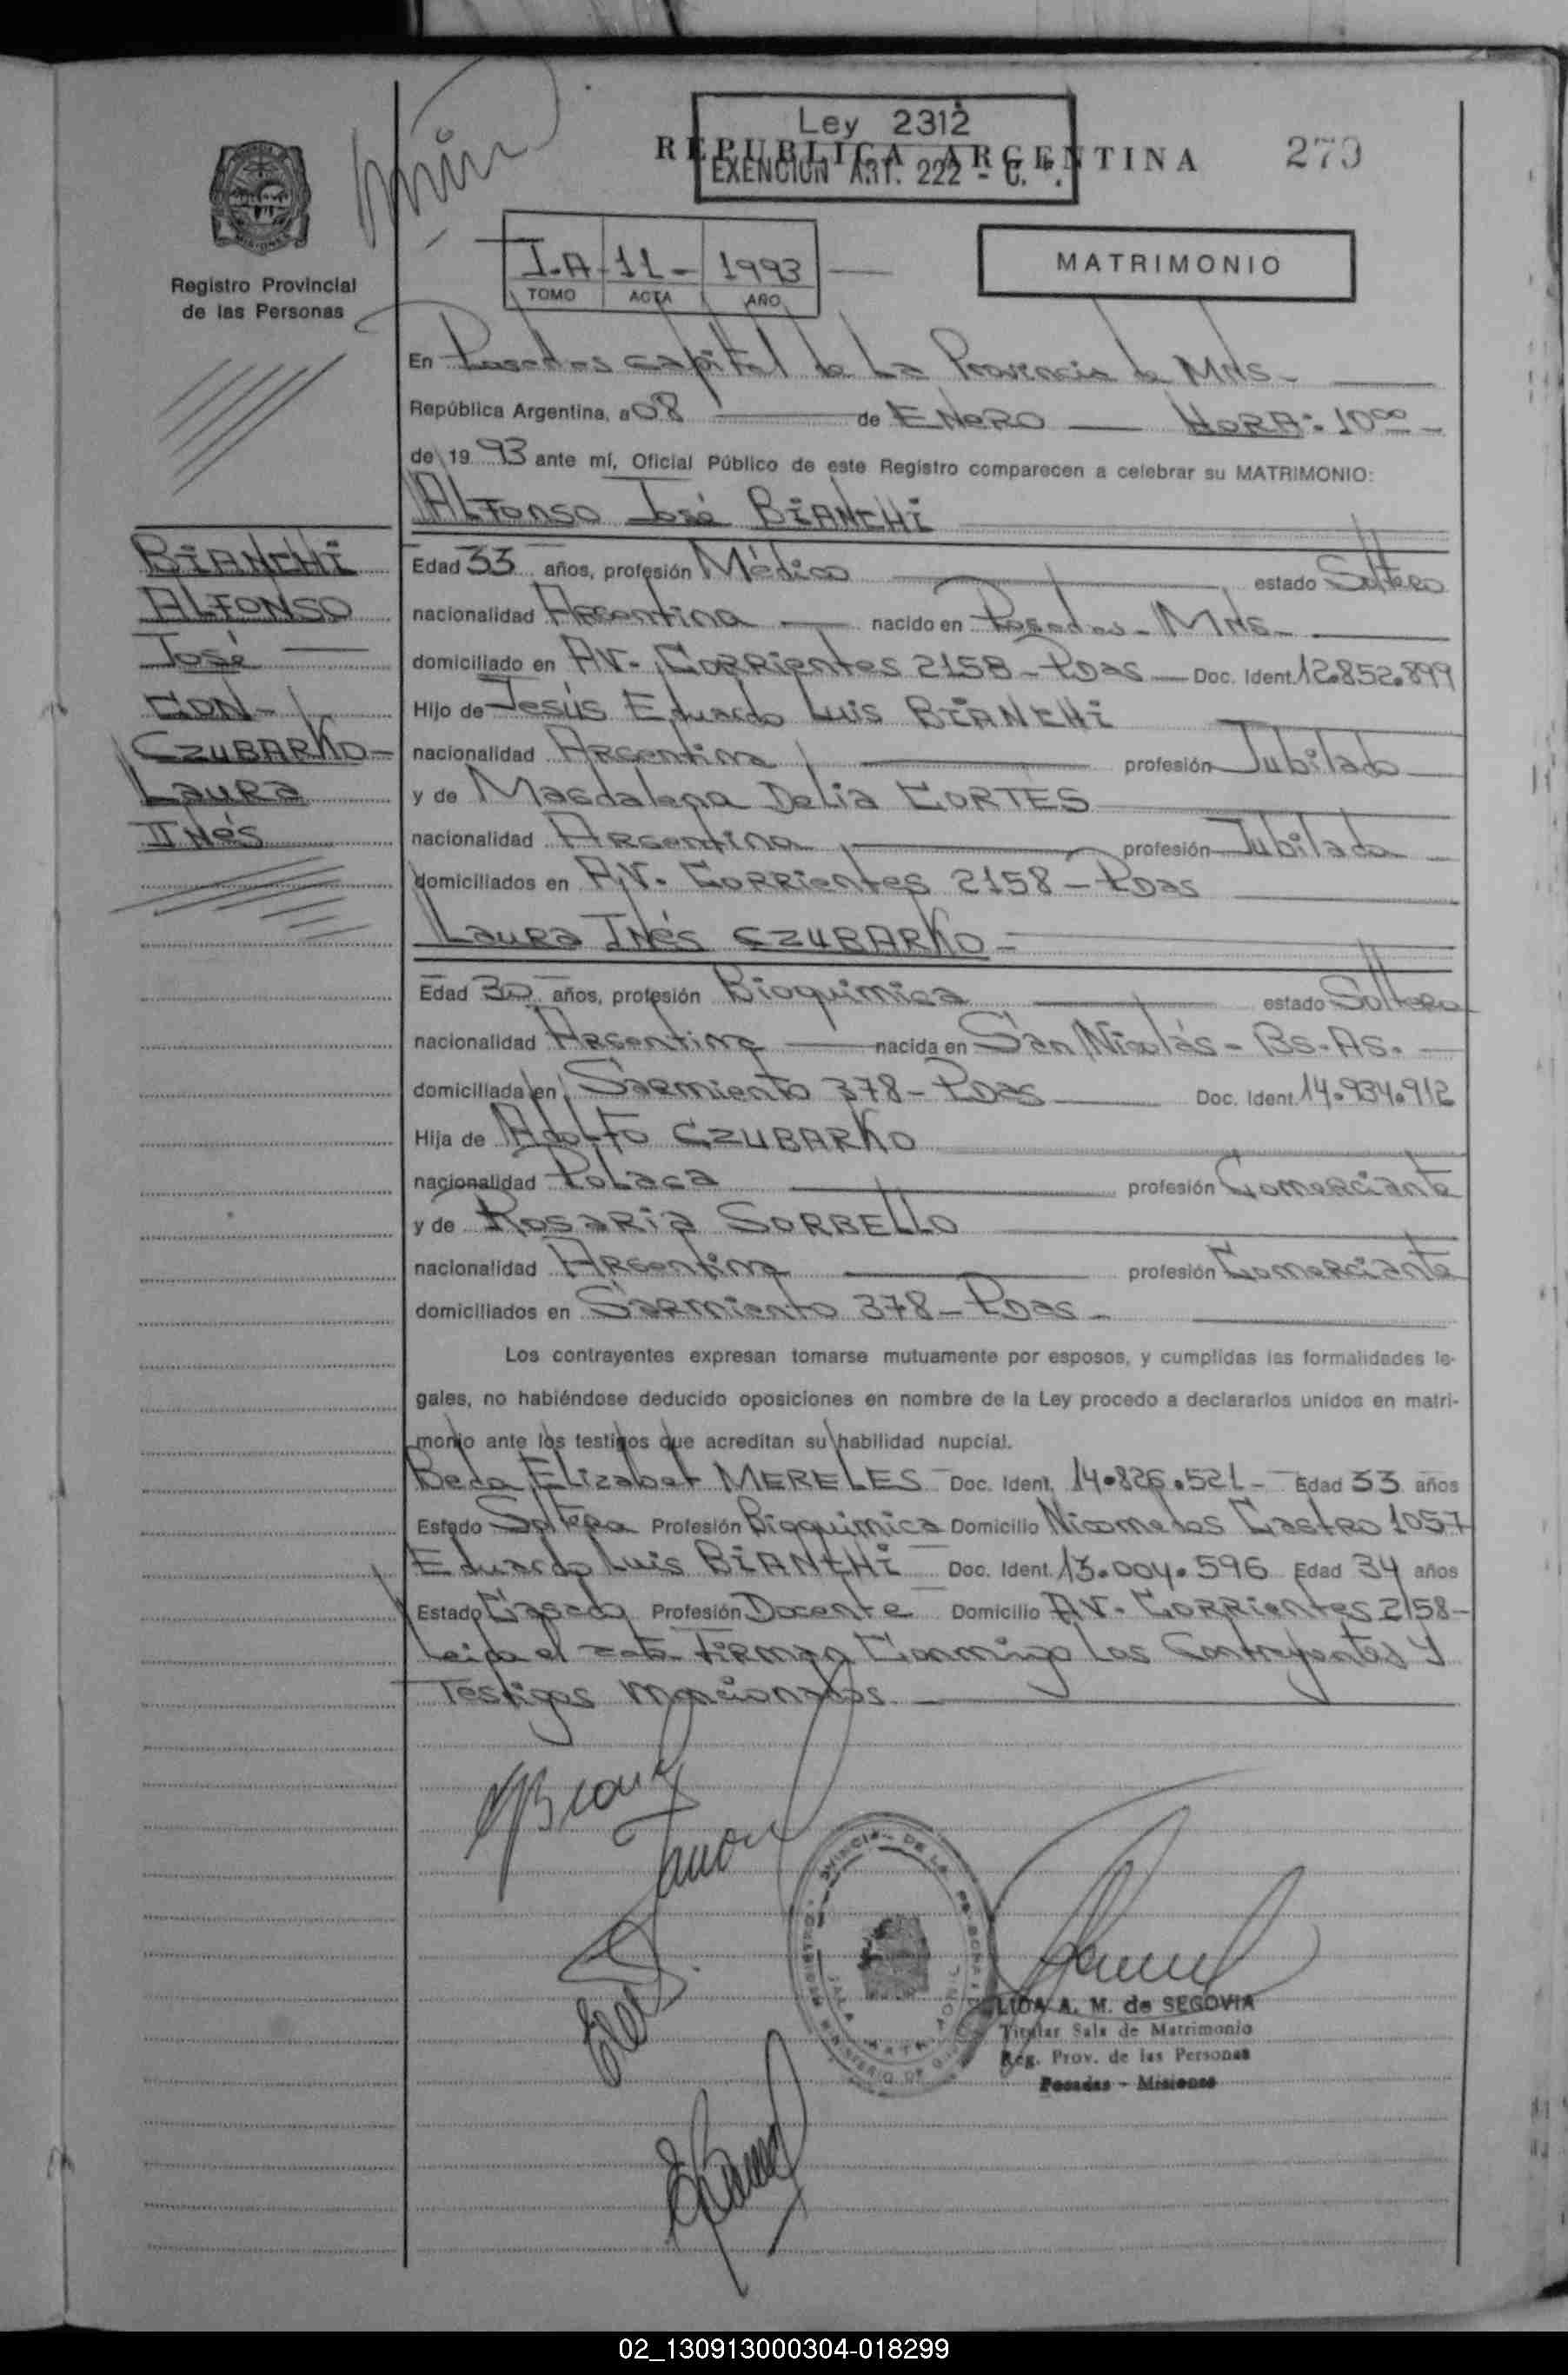 Ley 2312
REPUBLICA ARGENTINA
EXENCION ART. 222 - C. F.
279
I-A - 11 - 1993
TOMO ACTA AÑO
MATRIMONIO
MISIONES
Registro Provincial
de las Personas
BIANCHI
ALFONSO
José
CON -
CZUBARKO -
Laura
INés
En Posadas capital de La Provincia de Mns -
República Argentina, a 08 de ENERO HORA: 10 00 -
de 19 93 ante mí, Oficial Público de este Registro comparecen a celebrar su MATRIMONIO:
ALFONSO José BIANCHI
Edad 33 años, profesión Médico estado Soltero
nacionalidad Argentina nacido en Posadas - Mns -
domiciliado en AV. Corrientes 2158 - Pdas Doc. Ident. 12.852.899
Hijo de Jesús Eduardo Luis BIANCHI
nacionalidad Argentina profesión Jubilado
y de Magdalena Delia CORTES
nacionalidad Argentina profesión Jubilada
domiciliados en AV. Corrientes 2158 - Pdas
Laura INés CZUBARKO -
Edad 30 años, profesión Bioquimica estado Soltera
nacionalidad Argentina nacida en San Nicolás - Bs. As.
domiciliada en Sarmiento 378 - Pdas Doc. Ident. 14.934.912
Hija de Adolfo CZUBARKO
nacionalidad Polaca profesión Comerciante
y de Rosaria SORBELLO
nacionalidad Argentina profesión Comerciante
domiciliados en Sarmiento 378 - Pdas -
Los contrayentes expresan tomarse mutuamente por esposos, y cumplidas las formalidades le-
gales, no habiéndose deducido oposiciones en nombre de la Ley procedo a declararlos unidos en matri-
monio ante los testigos que acreditan su habilidad nupcial.
Beda Elizabet MERELES - Doc. Ident. 14.826.521 - Edad 33 años
Estado Soltera Profesión Bioquimica Domicilio Nicomedes Castro 1057
Eduardo Luis BIANCHI - Doc. Ident. 13.004.596 Edad 34 años
Estado Casado Profesión Docente Domicilio AV. Corrientes 2158 -
Leida el acta firman Conmigo Los Contrayentes Y
Testigos Mencionados.
LIDA A. M. de SEGOVIA
Titular Sala de Matrimonio
Reg. Prov. de las Personas
Posadas - Misiones
02_130913000304-018299